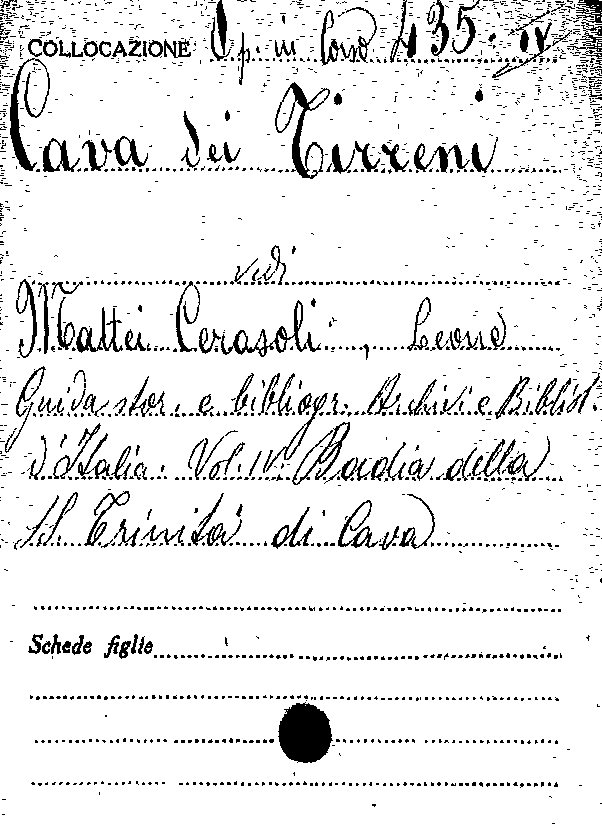 COLLOCAZIONE Op. in Cons 435. IV
Cava dei Tirreni
vedi
Mattei Cerasoli, Leone
Guida stor. e bibliogr. Archivi e Bibliot.
d'Italia. Vol. IV. Badia della
SS. Trinità di Cava
Schede figlie